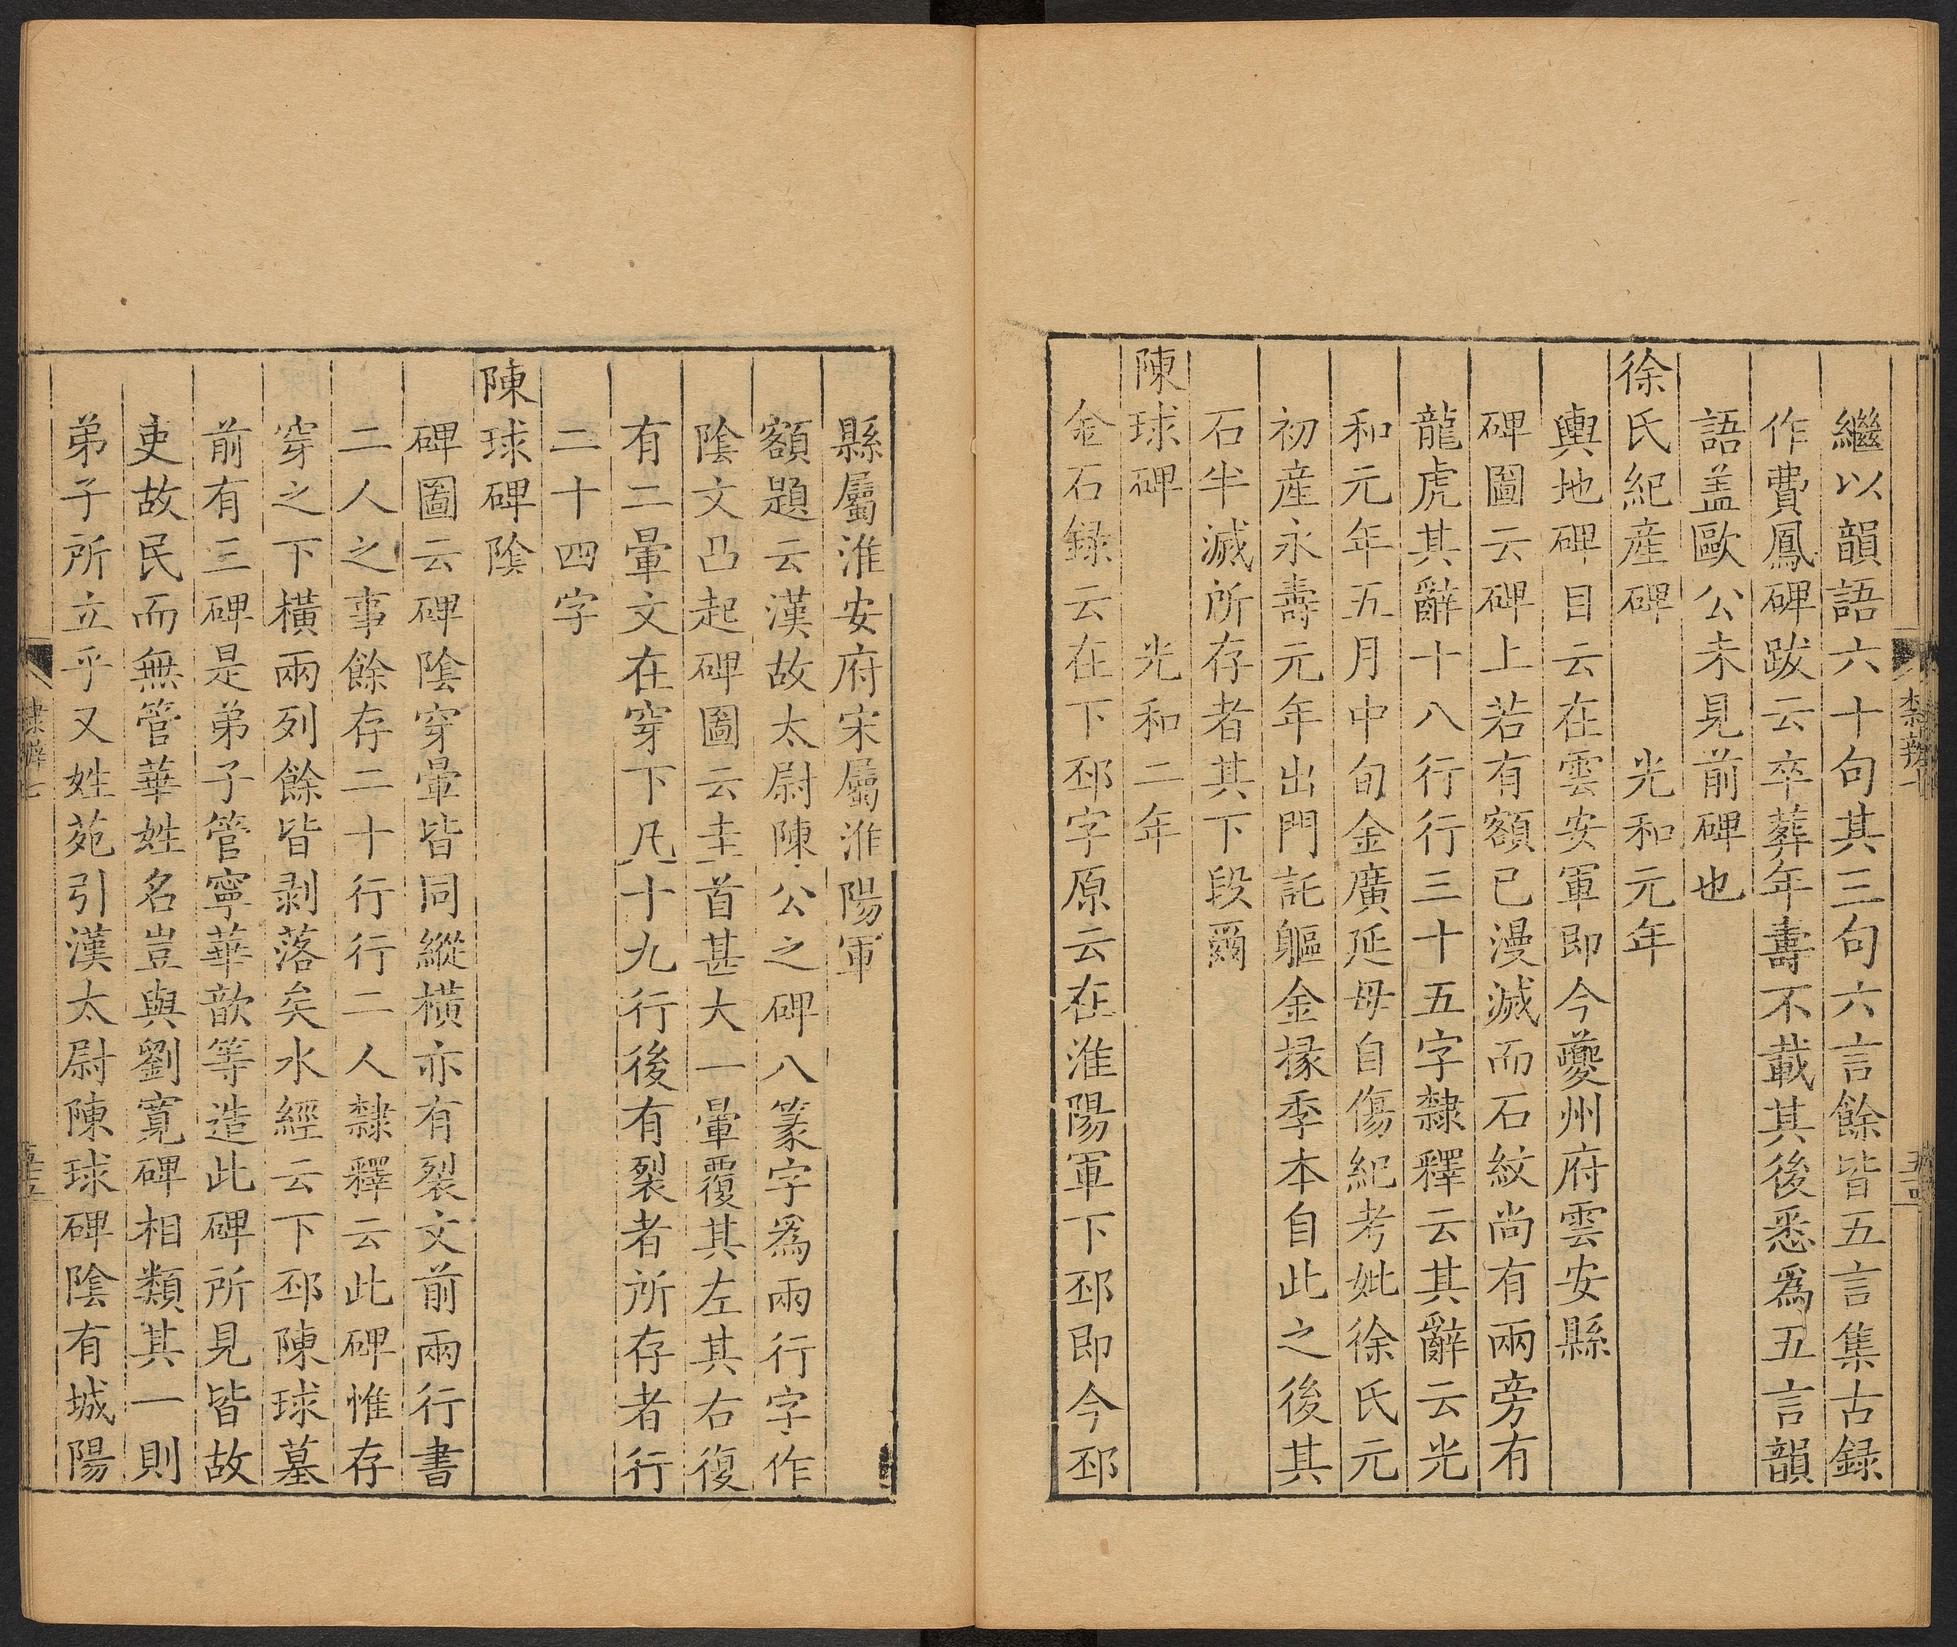 繼以韻語六十句其三句六言餘皆五言集古録
作費鳳碑跋云卒葬年壽不載其後悉爲五言韻
語盖歐公未見前碑也
徐氏紀産碑 光和元年
輿地碑目云在雲安軍即今夔州府雲安縣
碑圖云碑上若有額已漫滅而石紋尚有兩旁有
龍虎其辭十八行行三十五字隸釋云其辭云光
和元年五月中旬金廣延母自傷紀考妣徐氏元
初産永壽元年出門託軀金掾季本自此之後其
石半滅所存者其下段爾
陳球碑 光和二年
金石録云在下邳字原云在淮陽軍下邳即今邳
縣屬淮安府宋屬淮陽軍
額題云漢故太尉陳公之碑八篆字爲兩行字作
陰文凸起碑圖云圭首甚大一暈覆其左其右復
有二暈文在穿下凡十九行後有裂者所存者行
二十四字
陳球碑陰
碑圖云碑陰穿暈皆同縱橫亦有裂文前兩行書
二人之事餘存二十行行二人隸釋云此碑惟存
穿之下橫兩列餘皆剥落矣水經云下邳陳球墓
前有三碑是弟子管寧華歆等造此碑所見皆故
吏故民而無管華姓名豈與劉寛碑相類其一則
弟子所立乎又姓苑引漢太尉陳球碑陰有城陽
隸辨七